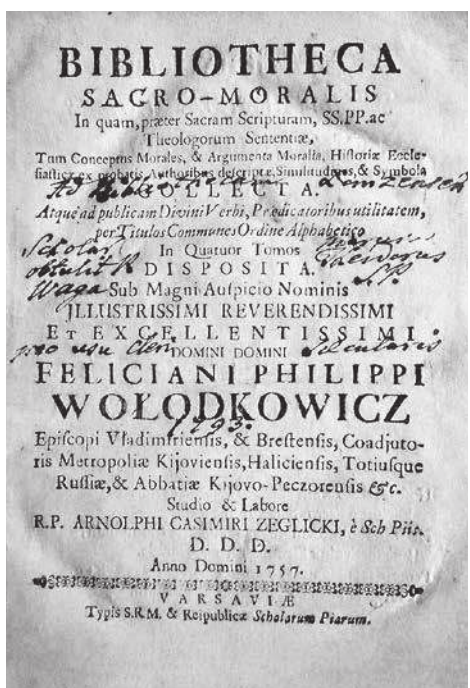 BIBLIOTHECA
SACRO-MORALIS
In quam, præter Sacram Scripturam, SS.PP. ac
Theologorum Sententiæ,
Tum Conceptus Morales, & Argumenta Moralia, Historiæ Eccle-
siasticæ ex probatis Authoribus descriptæ, Similitudines, & Symbola
COLLECTA.
Ad
Atque ad publicam Divini Verbi, Prædicatoribus utilitatem,
per Titulos Communes Ordine Alphabetico
In Quatuor Tomos
Scholar
obtulit R
DISPOSITA.
Waga
S.P.
Sub Magni Auspicio Nominis
ILLUSTRISSIMI REVERENDISSIMI
ET EXCELLENTISSIMI
pro usu Cleri
DOMINI DOMINI
FELICIANI PHILIPPI
WOŁODKOWICZ
1793.
Episcopi Vladimiriensis, & Brestensis, Coadjuto-
ris Metropoliæ Kijoviensis, Haliciensis, Totiusque
Russiæ, & Abbatiæ Kijovo-Peczorensis &c.
Studio & Labore
R.P. ARNOLPHI CASIMIRI ZEGLICKI, è Sch Piis.
D. D. D.
Anno Domini 1757.
VARSAVIÆ
Typis S.R.M. & Reipublicæ Scholarum Piarum.